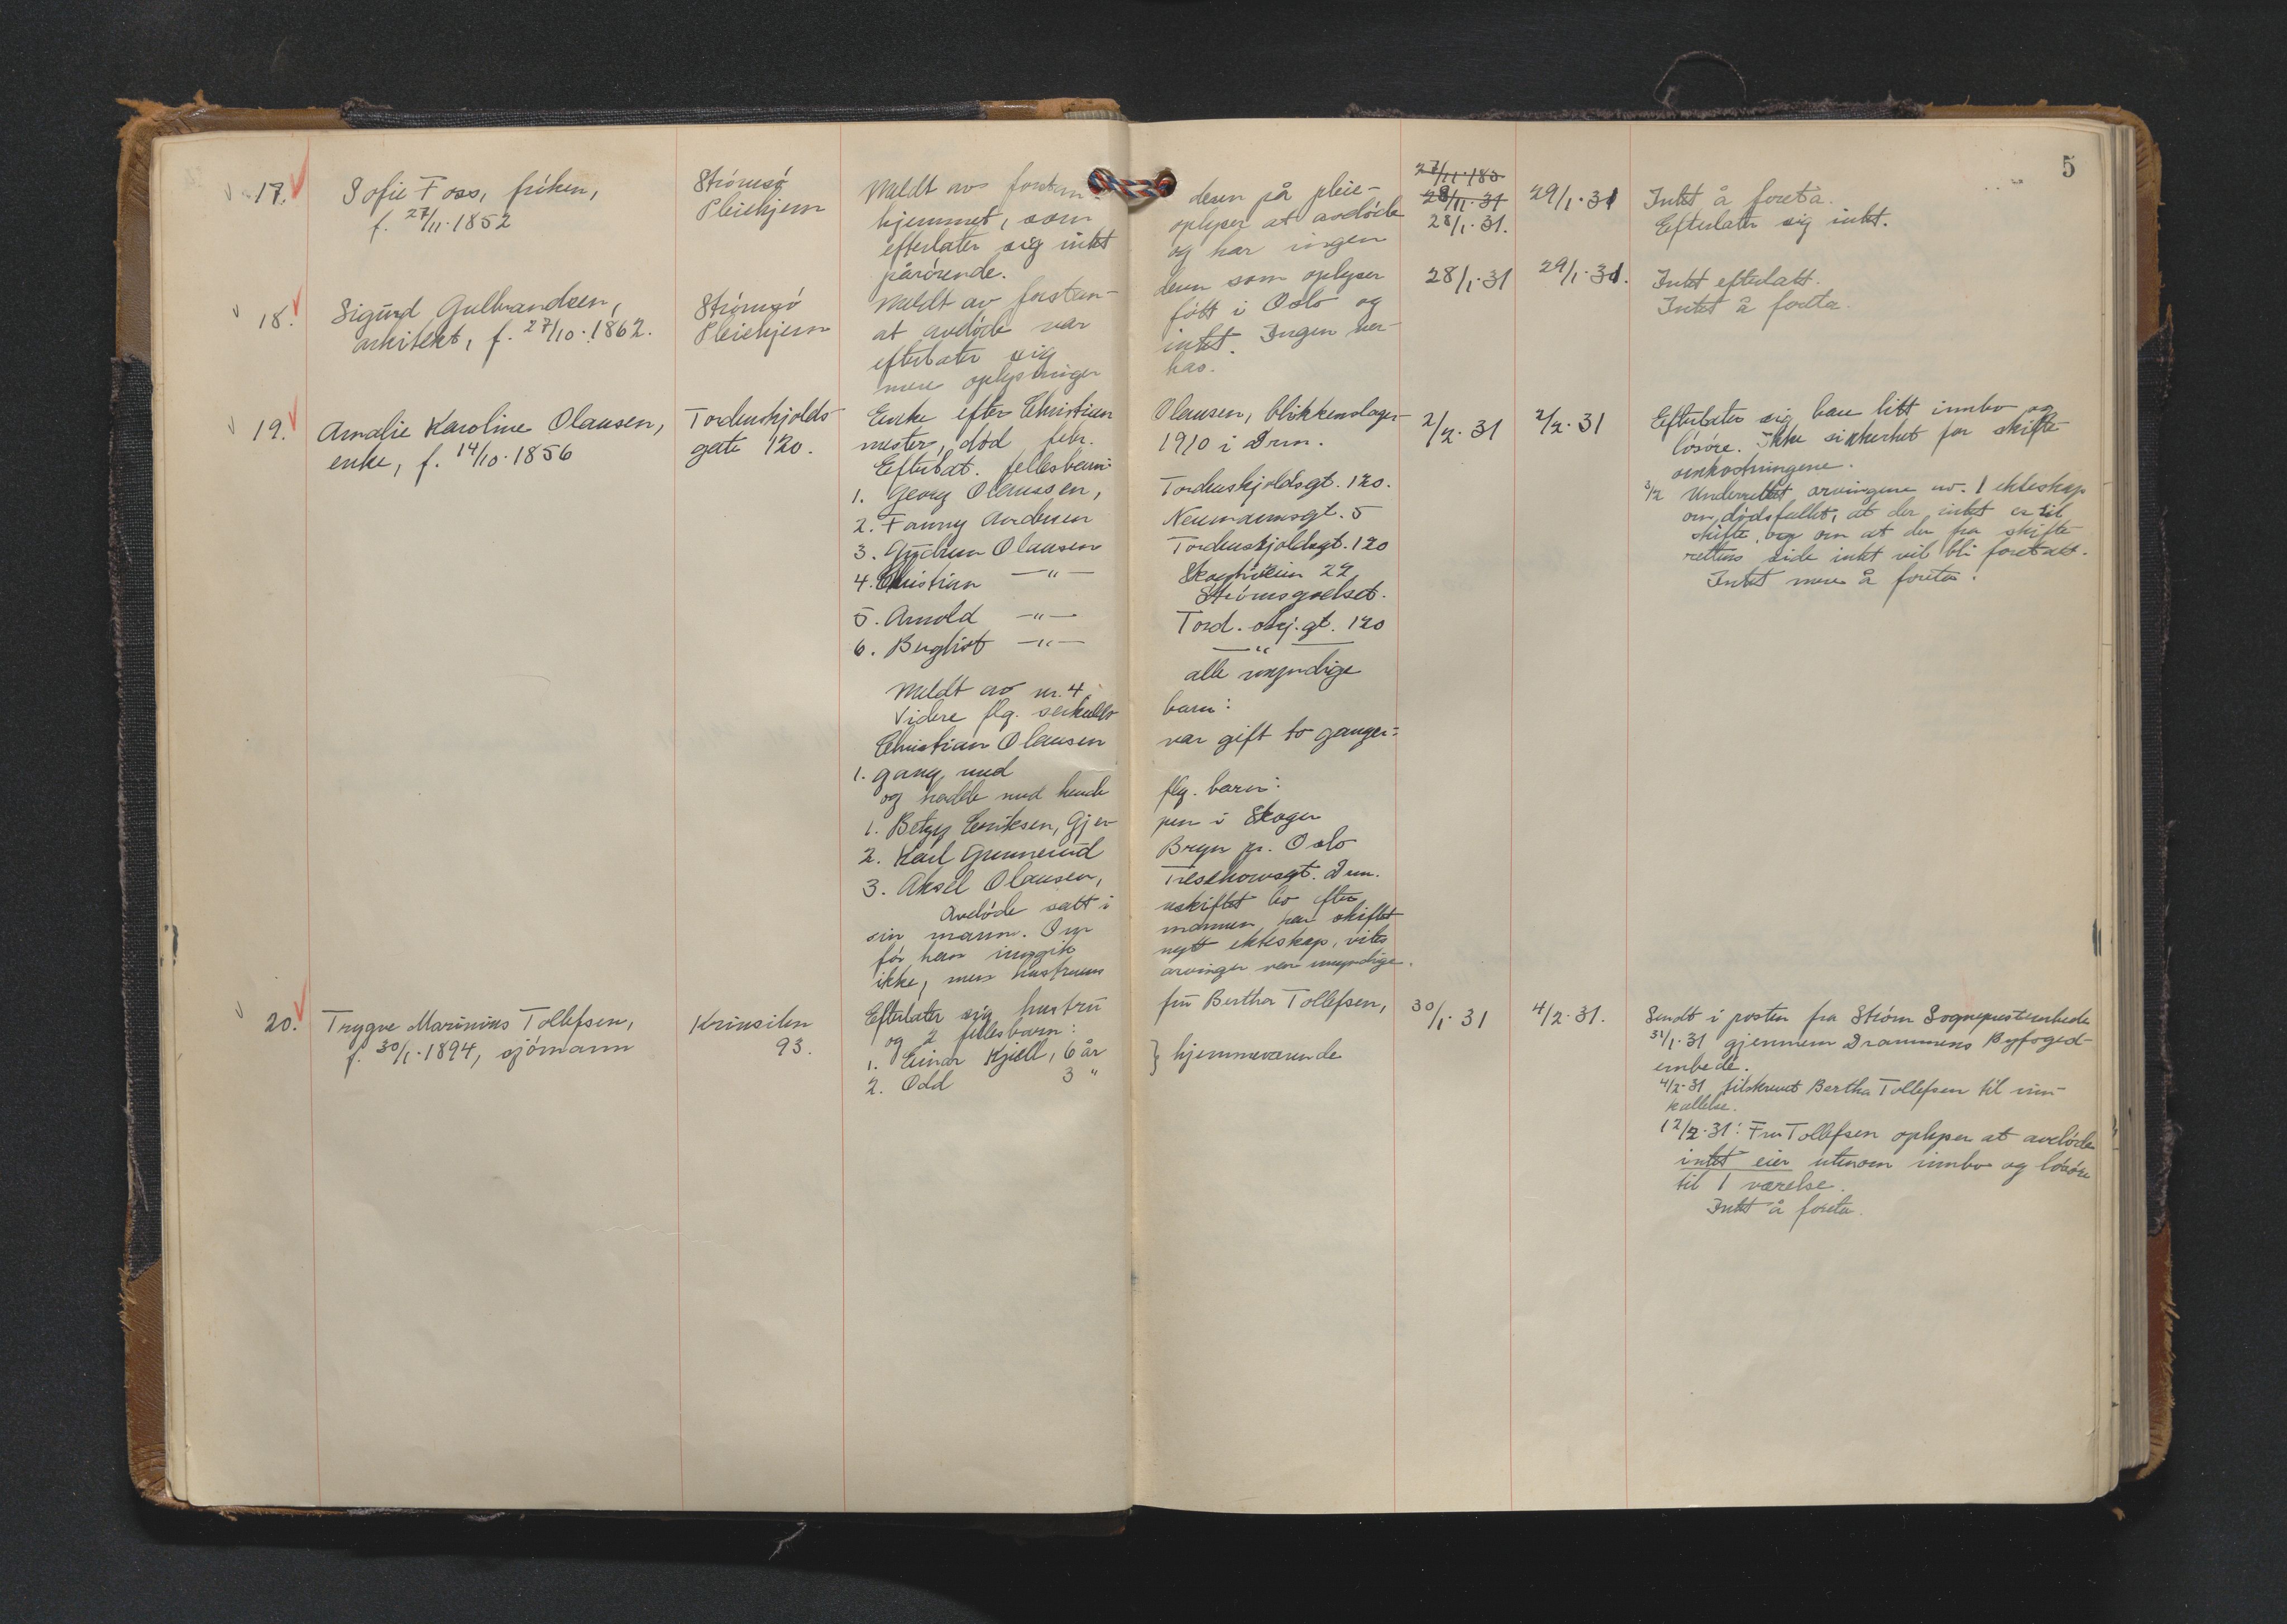 5
17.
Sofie Foss, frøken,
f. 27/11.1852
Strømsø
Pleiehjem
Meldt av forstan-
deren på pleie-
hjemmet, som
oplyser at avdøde
efterlater sig intet
og har ingen
pårørende.
27/11.185
28/11.31
28/1.31.
29/1.31
Intet å foreta.
Efterlater sig intet.
18.
Sigurd Gulbrandsen,
arkitekt, f. 27/10.1862.
Strømsø
Pleiehjem
Meldt av forstan-
deren som oplyser
at avdøde var
født i Oslo og
efterlater sig
intet. Ingen ver-
mere oplysninger
has.
28/1.31
29/1.31.
Intet efterlatt.
Intet å foreta.
19.
Amalie Karoline Olausen,
enke, f. 14/10.1856
Tordenskjolds-
gate 120.
Enke efter Christian
Olausen, blikkenslager-
mester, død febr.
1910 i Drm.
Efterlat. fellesbarn:
1. Georg Olaussen,
Tordenskjoldsgt. 120.
2. Fanny Andersen
Neumannsgt. 5
3. Gudrun Olausen
Tordenskjoldsgt. 120
4. Christian —"—
Skogheim 22
Strømsgodset.
5. Arnold —"—
Tord.skj.gt. 120
6. Bergliot —"—
—"—
alle myndige
Meldt av nr. 4.
Videre flg. særkulls
barn:
Christian Olausen
var gift to ganger:
1. gang med
og hadde med hende
flg. barn:
1. Betzy Eriksen, Gjer-
pen i Skoger
2. Karl Grennerud
Bryn pr. Oslo
3. Aksel Olausen,
Treschowsgt. Drm.
Avdøde satt i
uskiftet bo efter
sin mann. Om
mannen har skiftet
før han inngik
nytt ekteskap, vites
ikke, men hustruens
arvinger var umyndige.
2/2.31
2/2.31
Efterlater sig bare litt innbo og
løsøre. Ikke sikkerhet for skifte-
omkostningene.
3/2 Underrettet arvingene av 1 ekteskap
om dødsfallet, at der intet er til
skifte, og om at der fra skifte-
rettens side intet vil bli foretatt.
Intet mere å foreta.
20.
Trygve Marinius Tollefsen,
f. 30/1.1894, sjømann
Krinsilen
93.
Efterlater sig hustru
fru Bertha Tollefsen,
og 2 fellesbarn:
1. Einar Kjell, 6 år
2. Odd 3 "
} hjemmeværende
30/1.31
4/2.31.
Sendt i posten fra Strøm Sogneprestembede
31/1.31 gjennem Drammens Byfoged-
embede.
4/2.31 tilskrevet Bertha Tollefsen til inn-
kallelse.
12/2.31: Fru Tollefsen oplyser at avdøde
intet eier utenom innbo og løsøre
til 1 værelse.
Intet å foreta.